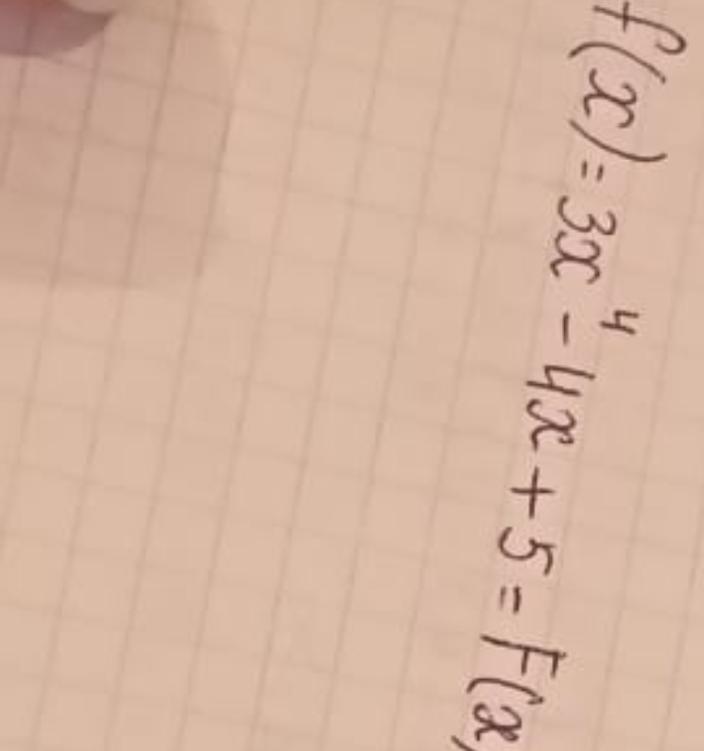 f(x) = 3x⁴ - 4x + 5 = F(x)